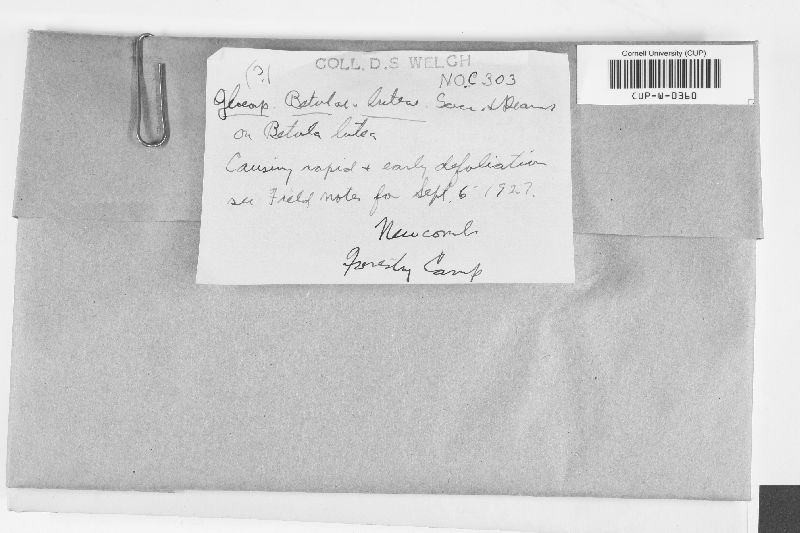 COLL. D.S WELCH
(?)
NO. C 303
Gloeosp. Betulae-luteae. Sacc. & Dearns
on Betula lutea
Causing rapid & early defoliation
see Field notes for Sept. 6 1927.
Newcomb
Forestry Camp
Cornell University (CUP)
CUP-W-0360